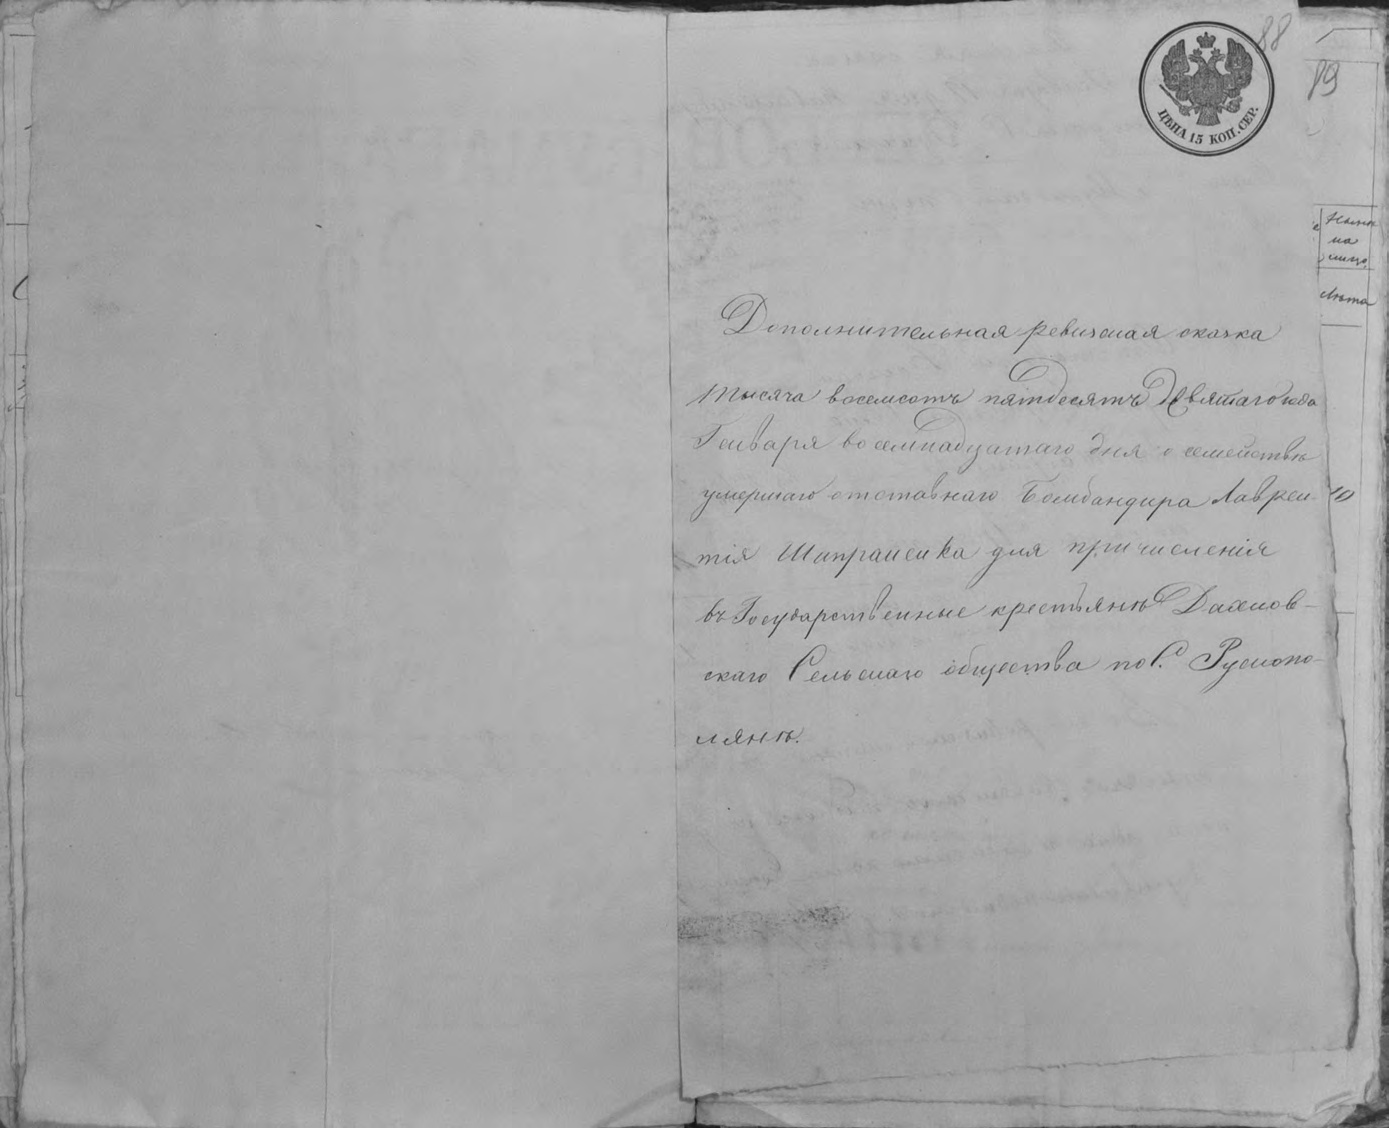 88
ЦѢНА 15 КОП. СЕР.
89
на
лицо
Лѣта
Дополнительная ревизская сказка
тысяча восемсотъ пятдесятъ Девятаго года
Генваря восемнадцатаго дня о семействѣ
умершаго отставнаго Бомбандира Лаврен-
10
тія Шапраненка для причисленія
въ Государственные крестьянѣ Дахнов-
скаго Сельскаго общества по С. Руснопо-
лянѣ.